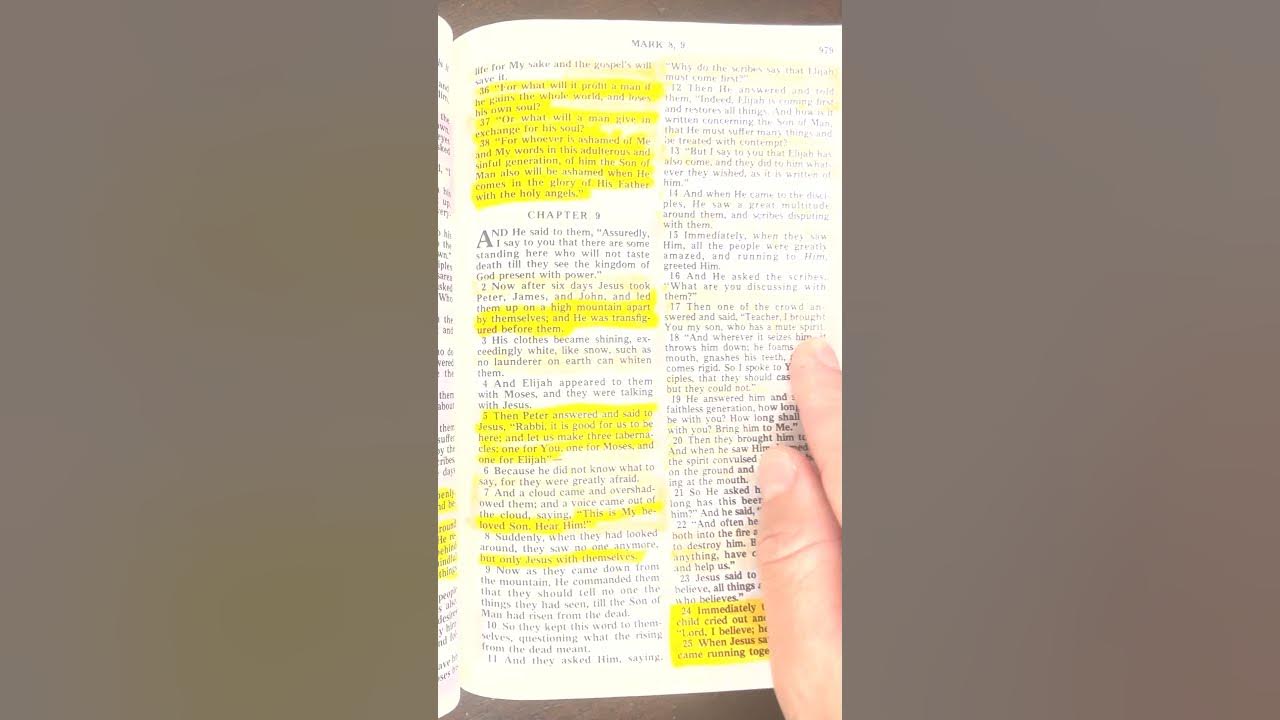 MARK 8, 9
979
life for My sake and the gospel's will
save it.
36 "For what will it profit a man if
he gains the whole world, and loses
his own soul?
37 "Or what will a man give in
exchange for his soul?
38 "For whoever is ashamed of Me
and My words in this adulterous and
sinful generation, of him the Son of
Man also will be ashamed when He
comes in the glory of His Father
with the holy angels."
CHAPTER 9
AND He said to them, "Assuredly,
I say to you that there are some
standing here who will not taste
death till they see the kingdom of
God present with power."
2 Now after six days Jesus took
Peter, James, and John, and led
them up on a high mountain apart
by themselves; and He was transfig-
ured before them.
3 His clothes became shining, ex-
ceedingly white, like snow, such as
no launderer on earth can whiten
them.
4 And Elijah appeared to them
with Moses, and they were talking
with Jesus.
5 Then Peter answered and said to
Jesus, "Rabbi, it is good for us to be
here; and let us make three taberna-
cles: one for You, one for Moses, and
one for Elijah"—
6 Because he did not know what to
say, for they were greatly afraid.
7 And a cloud came and overshad-
owed them; and a voice came out of
the cloud, saying, "This is My be-
loved Son. Hear Him!"
8 Suddenly, when they had looked
around, they saw no one anymore,
but only Jesus with themselves.
9 Now as they came down from
the mountain, He commanded them
that they should tell no one the
things they had seen, till the Son of
Man had risen from the dead.
10 So they kept this word to them-
selves, questioning what the rising
from the dead meant.
11 And they asked Him, saying,
"Why do the scribes say that Elijah
must come first?"
12 Then He answered and told
them, "Indeed, Elijah is coming first
and restores all things. And how is it
written concerning the Son of Man,
that He must suffer many things and
be treated with contempt?
13 "But I say to you that Elijah has
also come, and they did to him what-
ever they wished, as it is written of
him."
14 And when He came to the disci-
ples, He saw a great multitude
around them, and scribes disputing
with them.
15 Immediately, when they saw
Him, all the people were greatly
amazed, and running to Him,
greeted Him.
16 And He asked the scribes,
"What are you discussing with
them?"
17 Then one of the crowd an-
swered and said, "Teacher, I brought
You my son, who has a mute spirit.
18 "And wherever it seizes him, it
throws him down; he foams
mouth, gnashes his teeth,
comes rigid. So I spoke to
ciples, that they should cas
but they could not."
19 He answered him and
faithless generation, how long
be with you? How long shall
with you? Bring him to Me."
20 Then they brought him to
And when he saw Him,
the spirit convulsed
on the ground and
ing at the mouth.
21 So He asked
long has this been
him?" And he said,
22 "And often he
both into the fire
to destroy him.
anything, have
and help us."
23 Jesus said to
believe, all things
who believes."
24 Immediately
child cried out and
"Lord, I believe;
25 When Jesus
came running toge